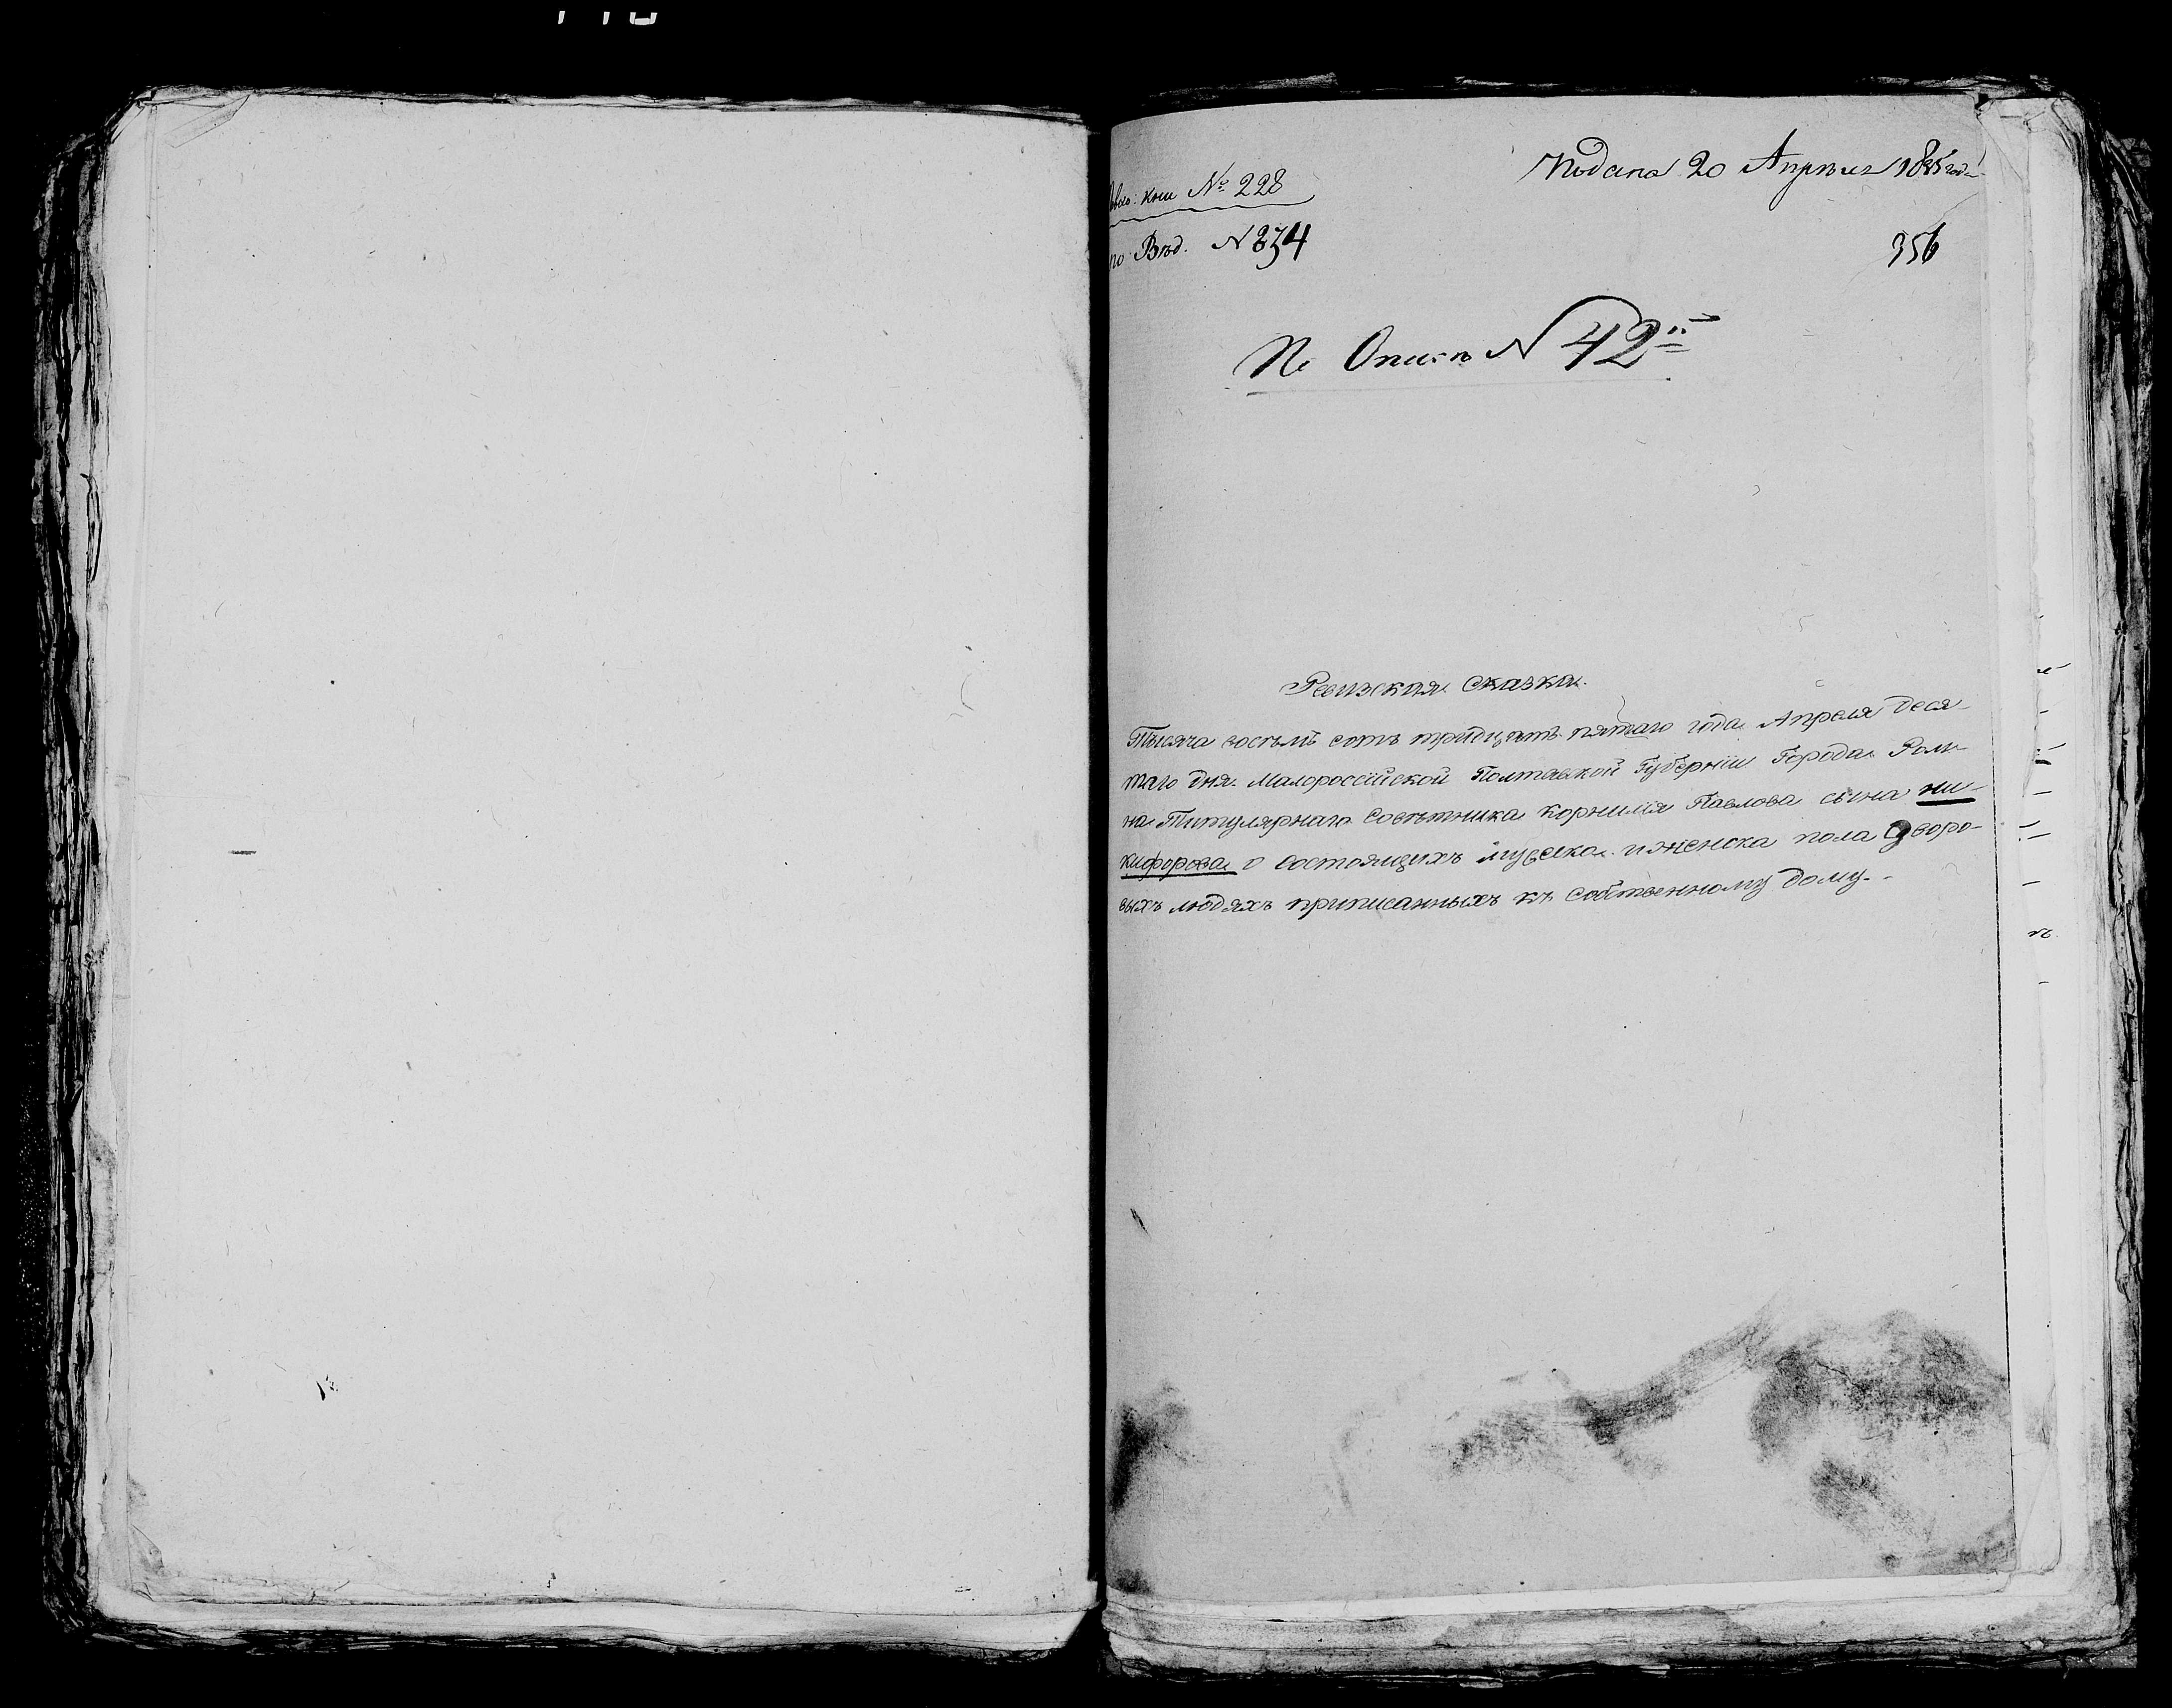 кни № 228
Подана 20 Апреля 1835 года
по Вѣд. N 234
356
По Описи N 42й
Ревизская сказка.
Тысяча восемь сотъ тридцать пятаго года Апреля деся-
таго дня. Малороссійской Полтавкой Губерніи Города Ром-
на Титулярнаго Советника Корнилія Павлова сына Ни-
кифорова о состоящихъ мужеска и женска пола дворо-
выхъ людяхъ приписанныхъ къ собственному дому.